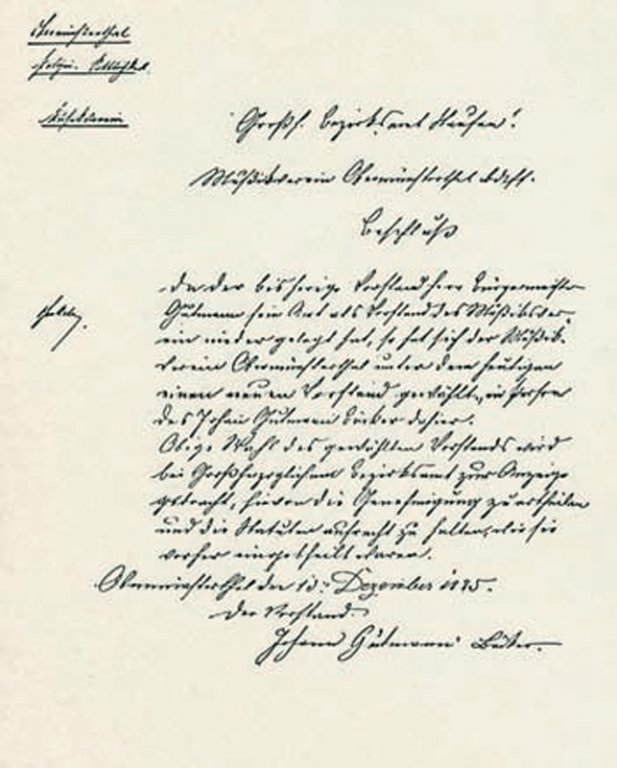 Obermünsterthal
Musikverein
Großh. Bezirksamt Staufen!
Musikverein Obermünsterthal betr.
Beschluß
Da der bisherige Vorstand Herr Bürgermeister
Gutmann sein Amt als Vorstand des Musikver-
ein niedergelegt hat, so hat sich der Musik-
verein Obermünsterthal unter dem heutigen
einen neuen Vorstand gewählt, in Person
des Johann Gutmann Bäcker dahier.
Obige Wahl des gewählten Vorstands wird
bei Großherzoglichem Bezirksamt zur Anzeige
gebracht, hievon die Genehmigung zu ertheilen
und die Statuten aufrecht zu halten, wie sie
vorher eingetheilt waren.
Obermünsterthal den Dezember 1885.
Der Vorstand.
Johann Gutmann Bäcker.